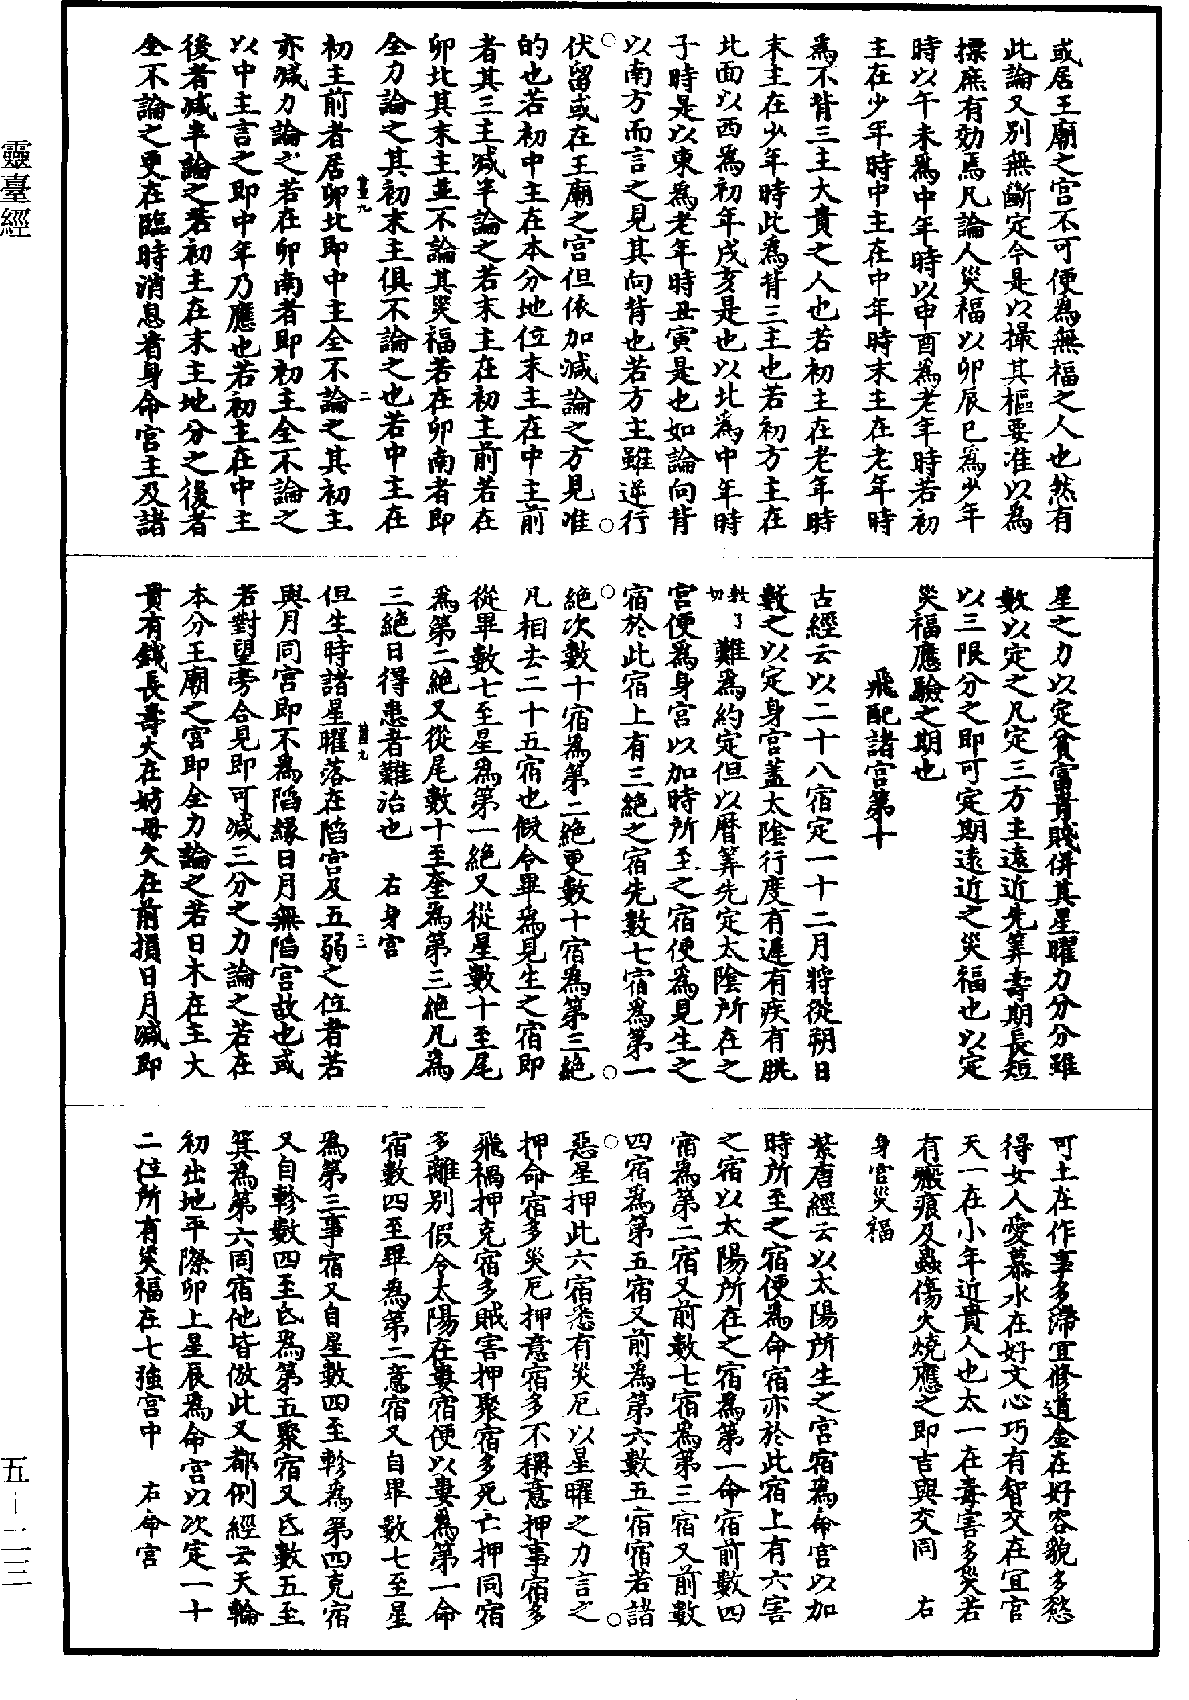 靈臺經
或居王廟之宮不可便為無福之人也然有
此論又別無斷定今是以撮其樞要准以為
摽庶有効焉凡論人災福以卯辰巳為少年
時以午未為中年時以申酉為老年時若初
主在少年時中主在中年時末主在老年時
為不背三主大貴之人也若初主在老年時
末主在少年時此為背三主也若初方主在
北面以西為初年戌亥是也以北為中年時
子時是以東為老年時丑寅是也如論向背
以南方而言之見其向背也若方主雖逆行
伏留或在王廟之宮但依加減論之方見准
的也若初中主在本分地位末主在中主前
者其三主減半論之若末主在初主前若在
卯北其末主並不論其災福若在卯南者即
全力論之其初末主俱不論之也若中主在
初主前者居卯北即中主全不論之其初主
亦減力論之若在卯南者即初主全不論之
以中主言之即中年乃應也若初主在中主
後者減半論之若初主在末主地分之後者
全不論之更在臨時消息者身命宮主及諸
星之力以定貧富貴賤併其星曜力分分雖
數以定之凡定三方主遠近先筭壽期長短
以三限分之即可定期遠近之災福也以定
災福應驗之期也
飛配諸宮第十
古經云以二十八宿定一十二月將從朔日
數之以定身宮蓋太陰行度有遲有疾有朓
數了切難為約定但以曆筭先定太陰所在之
宮便為身宮以加時所至之宿便為見生之
宿於此宿上有三絕之宿先數七宿為第一
絕次數十宿為第二絕更數十宿為第三絕
凡相去二十五宿也假令畢為見生之宿即
從畢數七至星為第一絕又從星數十至尾
為第二絕又從尾數十至奎為第三絕凡為
三絕日得患者難治也　右身宮
但生時諸星曜落在陷宮及五弱之位者若
與月同宮即不為陷緣日月無陷宮故也或
若對望旁合見即可減三分之力論之若在
本分王廟之宮即全力論之若日木在主大
貴有錢長壽火在妨母欠在前損日月減即
可土在作事多滯宜修道金在好容貌多愁
得女人愛慕水在好文心巧有智交在宜官
天一在小年近貴人也太一在毒害多災若
有癜痕及蟲傷火燒應之即吉與交同　右
身宮災福
紫唐經云以太陽所生之宮宿為命宮以加
時所至之宿便為命宿亦於此宿上有六害
之宿以太陽所在之宿為第一命宿前數四
宿為第二宿又前數七宿為第三宿又前數
四宿為第五宿又前為第六數五宿宿若諸
惡星押此六宿悉有災厄以星曜之力言之
押命宿多災厄押意宿多不稱意押事宿多
飛禍押克宿多賊害押聚宿多死亡押同宿
多離別假令太陽在婁宿便以婁為第一命
宿數四至畢為第二意宿又自畢數七至星
為第三事宿又自星數四至軫為第四克宿
又自軫數四至氐為第五聚宿又氐數五至
箕為第六同宿他皆倣此又都例經云天輪
初出地平際卯上星辰為命宮以次定一十
二位所有災福在七強宮中　右命宮
五－二三